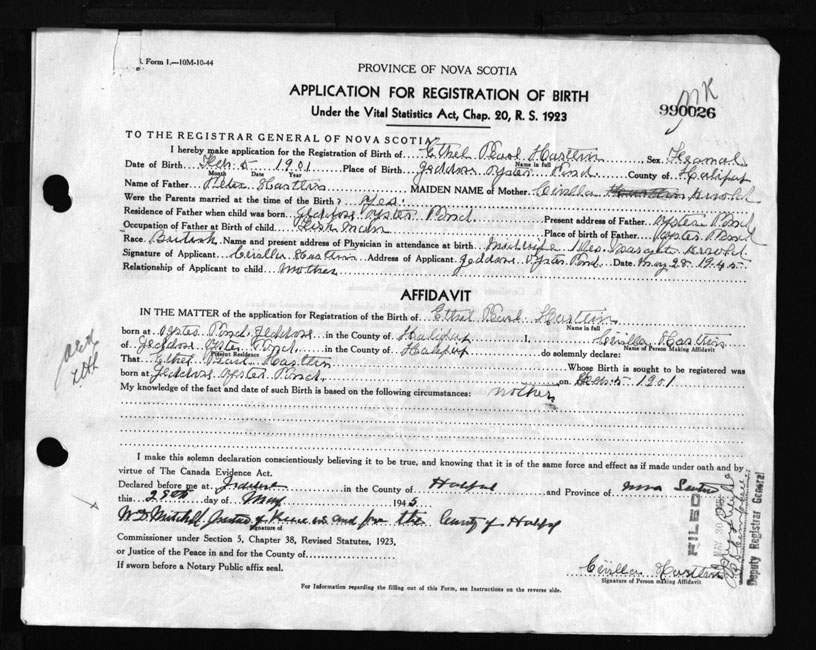 . Form 1.—10M-10-44
PROVINCE OF NOVA SCOTIA
APPLICATION FOR REGISTRATION OF BIRTH
Under the Vital Statistics Act, Chap. 20, R. S. 1923
990026
TO THE REGISTRAR GENERAL OF NOVA SCOTIA
I hereby make application for the Registration of Birth of Ethel Pearl Hartlin Sex
Name in full
Date of Birth Feb. 5 1901 Place of Birth Jeddore Oyster Pond County of Halifax
Month Date Year
Name of Father Peter Hartlin MAIDEN NAME of Mother Civilla
Were the Parents married at the time of the Birth? Yes.
Residence of Father when child was born Jeddore Oyster Pond Present address of Father Oyster Pond
Occupation of Father at Birth of child Fisherman Place of birth of Father Oyster Pond
Race British Name and present address of Physician in attendance at birth
Signature of Applicant Civilla Hartlin Address of Applicant Jeddore Oyster Pond Date May 28 1945
Relationship of Applicant to child mother
AFFIDAVIT
IN THE MATTER of the application for Registration of the Birth of Ethel Pearl Hartlin
Name in full
born at Oyster Pond Jeddore in the County of Halifax I, Civilla Hartlin
Name of Person Making Affidavit
of Jeddore Oyster Pond in the County of Halifax do solemnly declare:
Present Residence
That Ethel Pearl Hartlin Whose Birth is sought to be registered was
born at Jeddore Oyster Pond on Feb. 5 1901
My knowledge of the fact and date of such Birth is based on the following circumstances: mother
I make this solemn declaration conscientiously believing it to be true, and knowing that it is of the same force and effect as if made under oath and by
virtue of The Canada Evidence Act.
Declared before me at Jeddore in the County of Halifax and Province of Nova Scotia
this 28th day of May 1945
W. D. Mitchell Justice of Peace in and for the County of Halifax
Signature of
Commissioner under Section 5, Chapter 38, Revised Statutes, 1923,
or Justice of the Peace in and for the County of
If sworn before a Notary Public affix seal.
Civilla Hartlin
Signature of Person making Affidavit
For Information regarding the filling out of this Form, see Instructions on the reverse side.
FILED
MAY 30
Deputy Registrar General